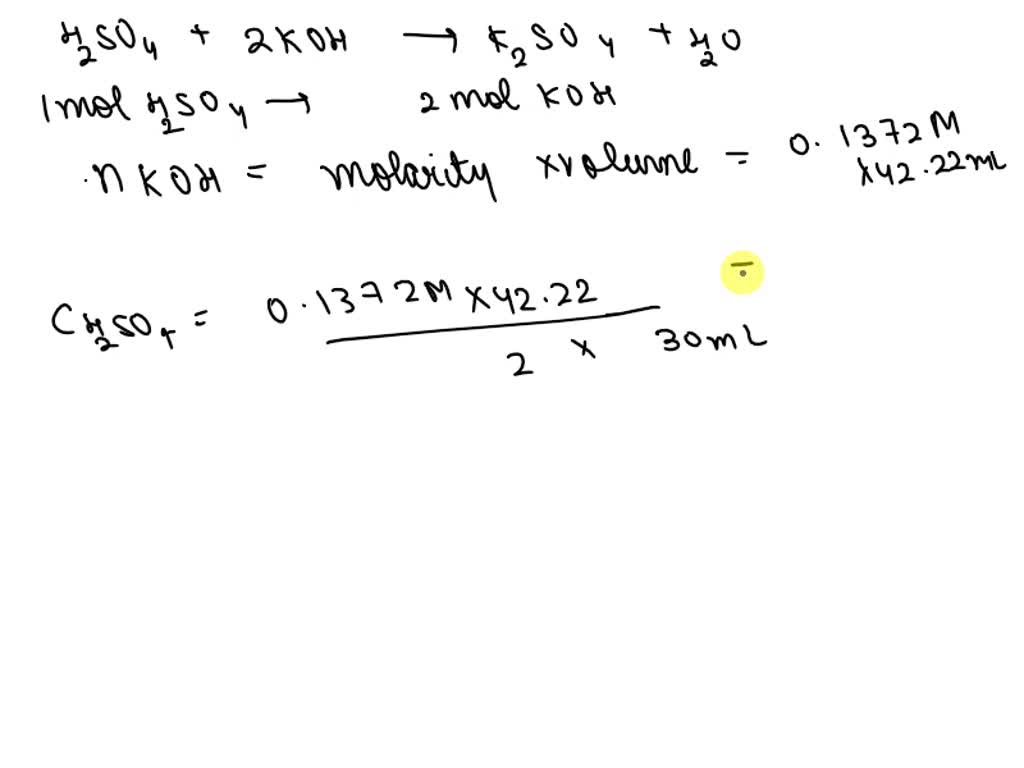 H₂SO₄ + 2KOH → K₂SO₄ + H₂O
1mol H₂SO₄ → 2 mol KOH
.n KOH = molarity xvolume = 0.1372M
x42.22mL
C H₂SO₄ = 0.1372M x42.22 =
2 x 30mL